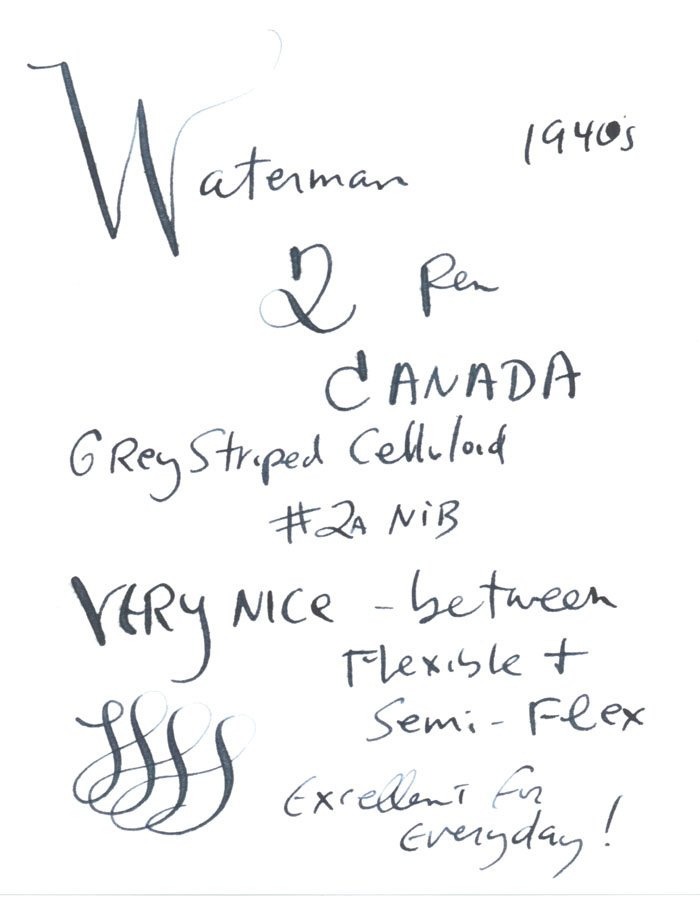 Waterman 1940's
2 Pen
CANADA
Grey Striped Celluloid
#2A NiB
VERY NICE - between
Flexible +
Semi-Flex
Excellent for
Everyday!